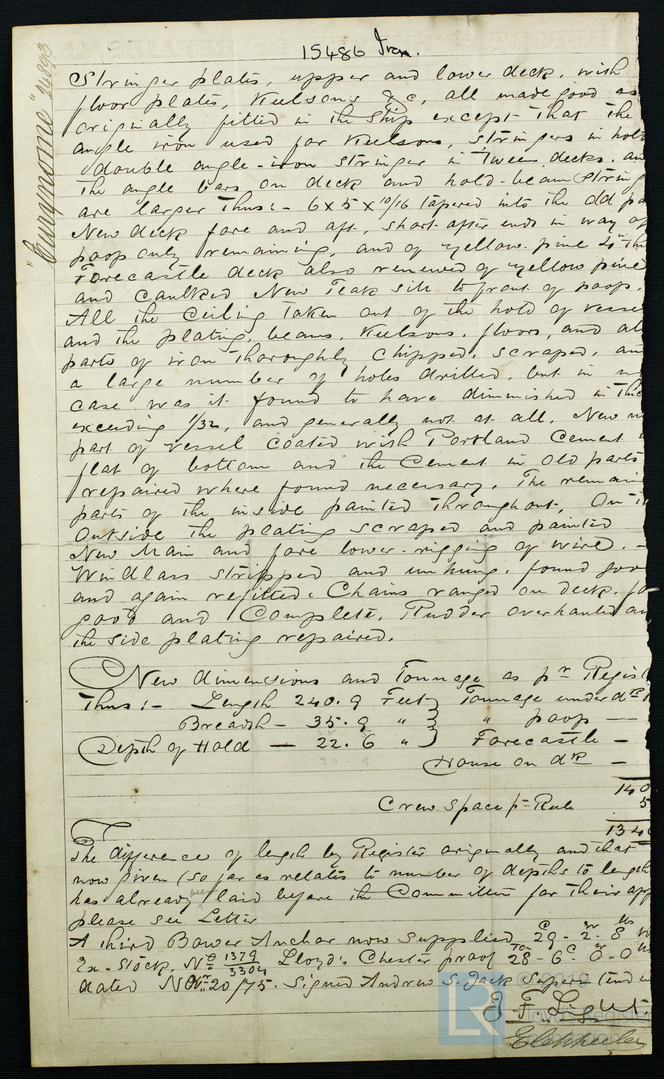 15486 Iron.
"Eurynome" 24893
Stringer plates, upper and lower deck, with
floor plates, Keelsons &c, all made good as
originally fitted in the ship except that the
angle iron used for Keelsons, stringers in hold
double angle-iron stringer in Tween decks, an
the angle bars on deck and hold-beam String
are larger Thus:- 6 x 5 x 10/16 Tapered into the old pa
New deck fore and aft, short after ends in way of
poop only remaining, and of yellow pine 4 in Th
Forecastle deck also renewed of yellow pine
and caulked New Teak sill to front of poop.
All the Ceiling Taken out of the hold of vesse
and the plating, beams, Keelsons, floors, and all
parts of iron Thoroughly chipped, scraped, an
a large number of holes drilled, but in n
case was it found to have diminished in Thic
exceeding 1/32, and generally not at all. New
part of vessel coated with Portland Cement
flat of bottom and the Cement in Old parts
repaired where found necessary. The remain
parts of the inside painted throughout, On t
Outside the plating scraped and painted
New Main and fore lower-rigging of wire. -
Windlass stripped and unhung, found good
and again refitted. Chains ranged on deck, fo
good and Complete. Rudder overhauled an
the side plating repaired.
New dimensions and Tonnage as pr Regist
Thus:- Length 240.9 Feet } Tonnage under dk
Breadth - 35.9 " } " poop --
Depth of Hold - 22.6 " } Forecastle -
House on dk -
140
Crew Space pr Rule 5
134
The difference of length by Register originally and that
now given (so far as relates to number of depths to length
has already been laid before the Committee for their app
please see Letter
A third Bower Anchor now Supplied C 29 - qr 2 - lbs 8
Ex-Stock, No 1379/3304 Lloyd's Chester proof Tons 28 - 6 C 0 qr 0
dated Nov. 20/75. Signed Andrew S. Jack Superintend
J F Light
LR
© 2019
Lloyd's Register